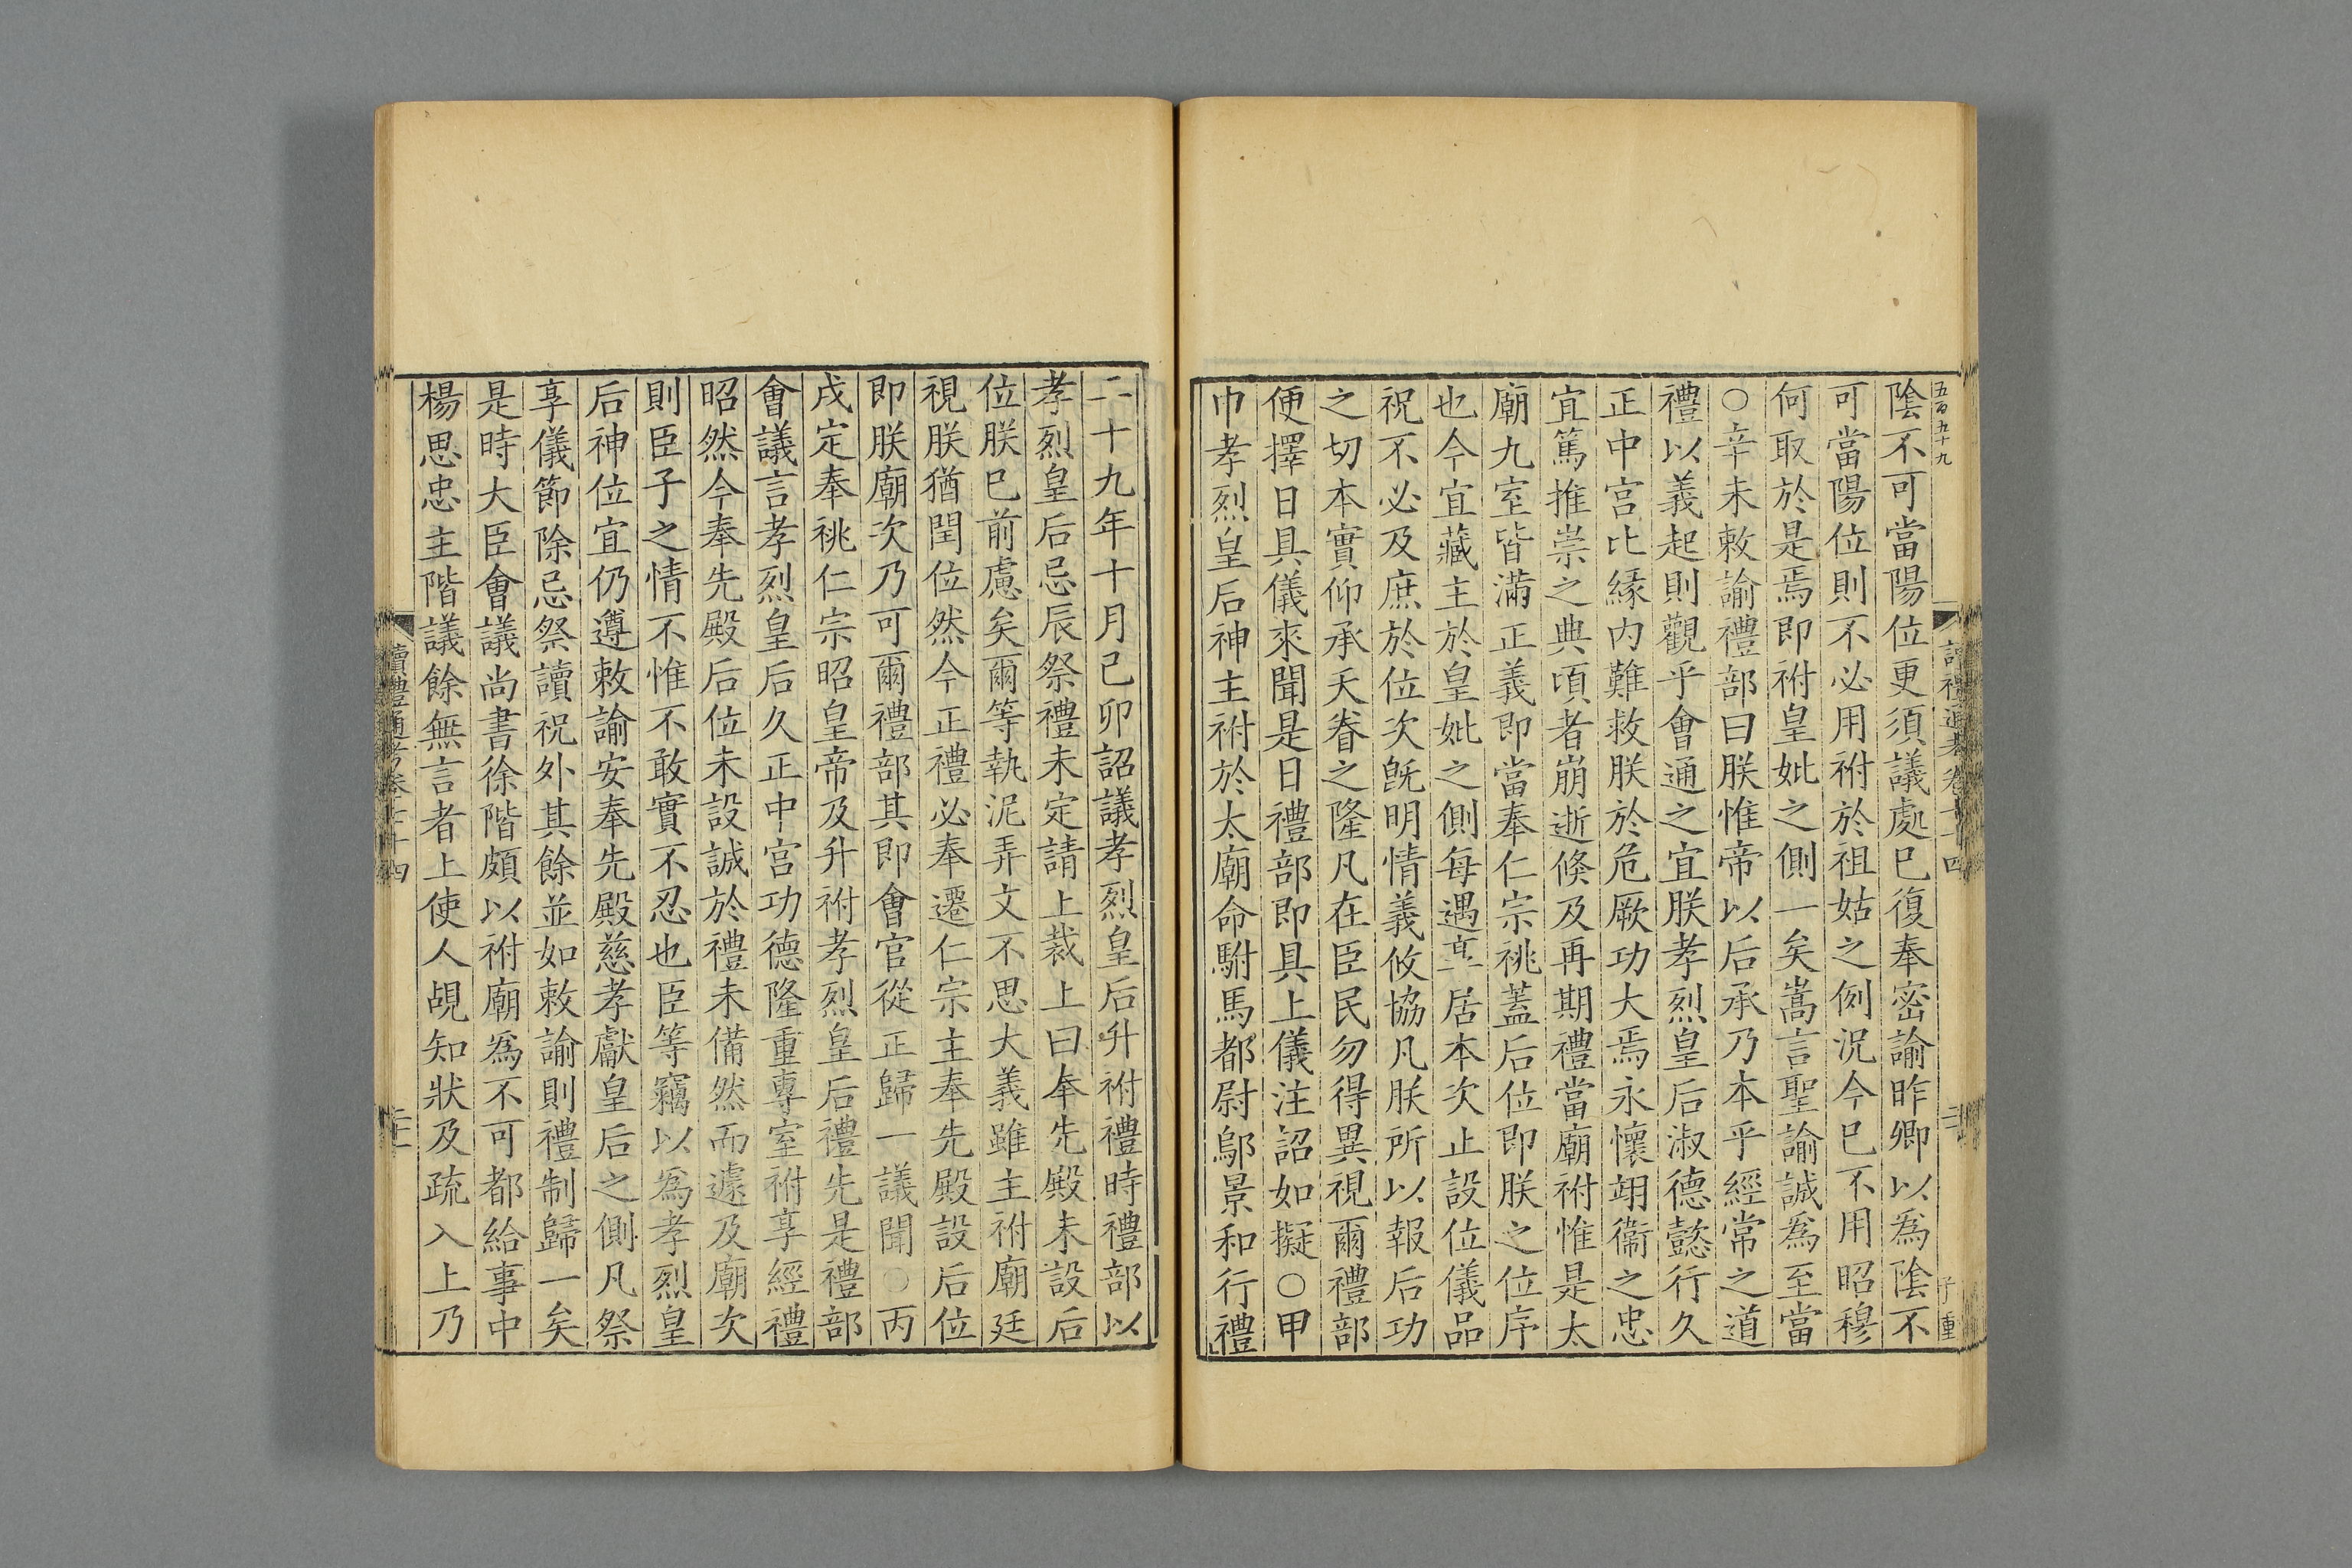 五百五十九
陰不可當陽位更須議處已復奉密諭昨卿以為陰不
可當陽位則不必用祔於祖姑之例況今已不用昭穆
何取於是焉即祔皇妣之側一矣嵩言聖諭誠為至當
○辛未敕諭禮部曰朕惟帝以后承乃本乎經常之道
禮以義起則觀乎會通之宜朕孝烈皇后淑德懿行久
正中宮比緣內難救朕於危厥功大焉永懷翊衞之忠
宜篤推崇之典頃者崩逝倏及再期禮當廟祔惟是太
廟九室皆滿正義即當奉仁宗祧蓋后位即朕之位序
也今宜藏主於皇妣之側每遇享居本次止設位儀品
祝不必及庶於位次旣明情義攸協凡朕所以報后功
之切本實仰承天眷之隆凡在臣民勿得異視爾禮部
便擇日具儀來聞是日禮部即具上儀注詔如擬○甲
巾孝烈皇后神主祔於太廟命駙馬都尉鄔景和行禮
子重
二十九年十月己卯詔議孝烈皇后升祔禮時禮部以
孝烈皇后忌辰祭禮未定請上裁上曰奉先殿未設后
位朕已前慮矣爾等執泥弄文不思大義雖主祔廟廷
視朕猶閏位然今正禮必奉遷仁宗主奉先殿設后位
即朕廟次乃可爾禮部其即會官從正歸一議聞○丙
戌定奉祧仁宗昭皇帝及升祔孝烈皇后禮先是禮部
會議言孝烈皇后久正中宮功德隆重專室祔享經禮
昭然今奉先殿后位未設誠於禮未備然而遽及廟次
則臣子之情不惟不敢實不忍也臣等竊以為孝烈皇
后神位宜仍遵敕諭安奉先殿慈孝獻皇后之側凡祭
享儀節除忌祭讀祝外其餘並如敕諭則禮制歸一矣
是時大臣會議尚書徐階頗以祔廟為不可都給事中
楊思忠主階議餘無言者上使人覘知狀及疏入上乃
讀禮通考卷五十四